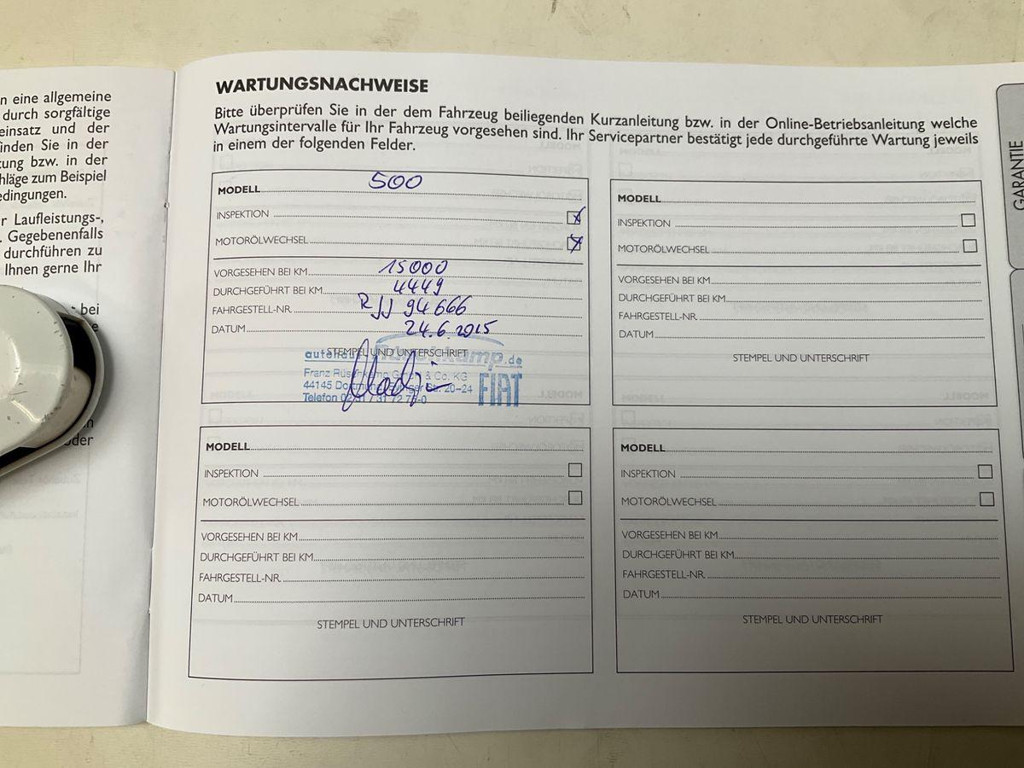 n eine allgemeine
durch sorgfältige
einsatz und der
inden Sie in der
ung bzw. in der
hläge zum Beispiel
edingungen.
r Laufleistungs-,
. Gegebenenfalls
durchführen zu
Ihnen gerne Ihr
bei
oder
WARTUNGSNACHWEISE
Bitte überprüfen Sie in der dem Fahrzeug beiliegenden Kurzanleitung bzw. in der Online-Betriebsanleitung welche
Wartungsintervalle für Ihr Fahrzeug vorgesehen sind. Ihr Servicepartner bestätigt jede durchgeführte Wartung jeweils
in einem der folgenden Felder.
MODELL 500
INSPEKTION
MOTORÖLWECHSEL
VORGESEHEN BEI KM 15000
DURCHGEFÜHRT BEI KM 4449
FAHRGESTELL-NR. RJJ 94666
DATUM 24.6.2015
STEMPEL UND UNTERSCHRIFT
kamp.de
Franz Rüschkamp GmbH & Co. KG
44145 Dortmund 20-24
Telefon
FIAT
MODELL
INSPEKTION
MOTORÖLWECHSEL
VORGESEHEN BEI KM
DURCHGEFÜHRT BEI KM
FAHRGESTELL-NR.
DATUM
STEMPEL UND UNTERSCHRIFT
MODELL
INSPEKTION
MOTORÖLWECHSEL
VORGESEHEN BEI KM
DURCHGEFÜHRT BEI KM
FAHRGESTELL-NR.
DATUM
STEMPEL UND UNTERSCHRIFT
MODELL
INSPEKTION
MOTORÖLWECHSEL
VORGESEHEN BEI KM
DURCHGEFÜHRT BEI KM
FAHRGESTELL-NR.
DATUM
STEMPEL UND UNTERSCHRIFT
GARANTIE